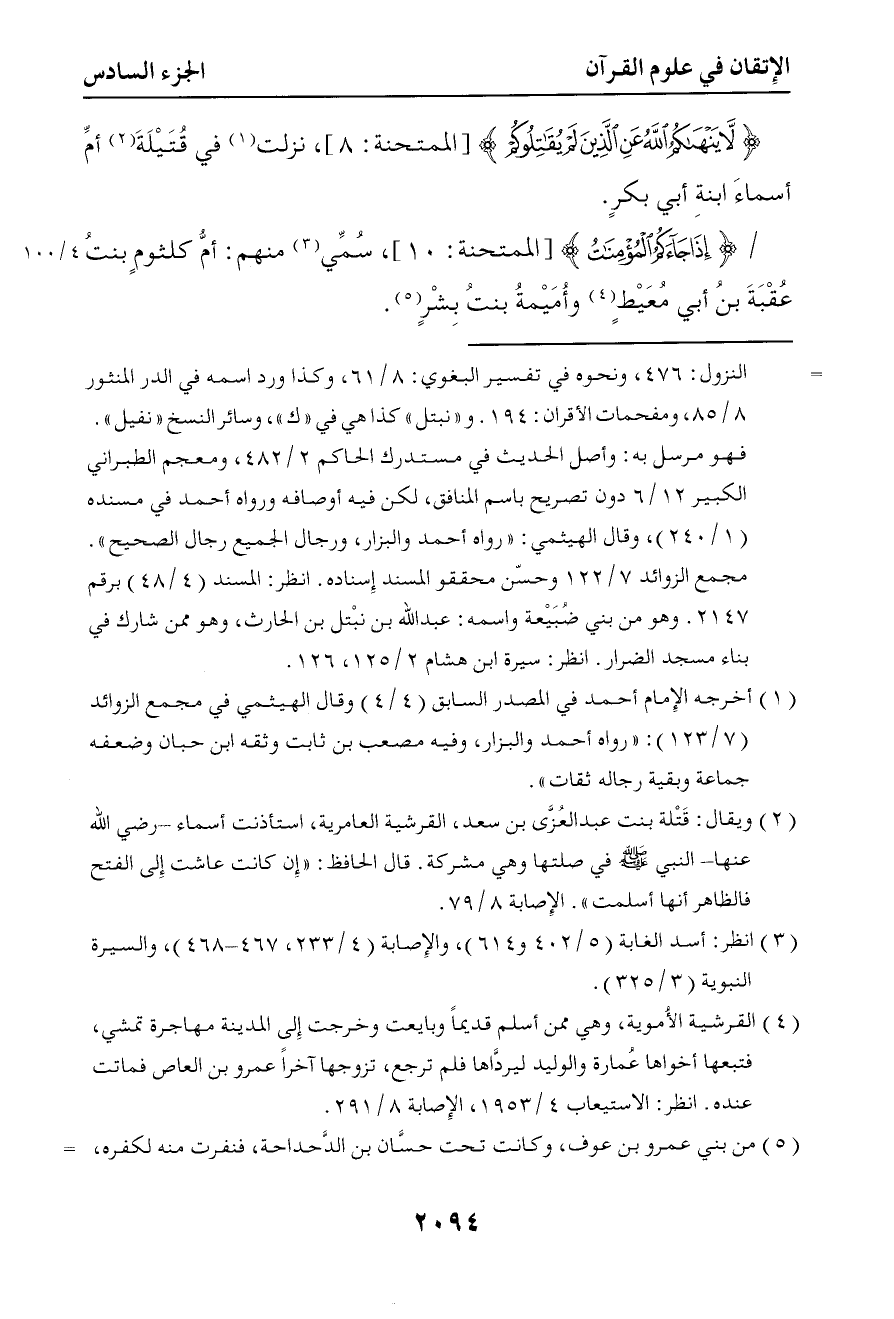 الإتقان في علوم القرآن
الجزء السادس
﴿ لَّا يَنْهَىٰكُمُ ٱللَّهُ عَنِ ٱلَّذِينَ لَمْ يُقَٰتِلُوكُمْ ﴾ [الممتحنة: ٨]، نزلت(١) في قُتَيْلَةَ(٢) أمِّ
أسماءَ ابنةِ أبي بكرٍ.
/ ﴿ إِذَا جَآءَكُمُ ٱلْمُؤْمِنَٰتُ ﴾ [الممتحنة: ١٠]، سُمِّي(٣) منهم: أمُّ كلثومٍ بنتُ ١٠٠/٤
عُقْبَةَ بنُ أبي مُعَيْطٍ(٤) وأُمَيْمةُ بنتُ بِشْرٍ(٥).
= النزول: ٤٧٦، ونحوه في تفسير البغوي: ٦١/٨، وكذا ورد اسمه في الدر المنثور
٨٥/٨، ومفحمات الأقران: ١٩٤. و«نبتل» كذا هي في «ك»، وسائر النسخ «نفيل».
فهو مرسل به: وأصل الحديث في مستدرك الحاكم ٤٨٢/٢، ومعجم الطبراني
الكبير ٦/١٢ دون تصريح باسم المنافق، لكن فيه أوصافه ورواه أحمد في مسنده
(٢٤٠/١)، وقال الهيثمي: «رواه أحمد والبزار، ورجال الجميع رجال الصحيح».
مجمع الزوائد ١٢٢/٧ وحسّن محققو المسند إسناده. انظر: المسند (٤٨/٤) برقم
٢١٤٧. وهو من بني ضُبَيْعة واسمه: عبدالله بن نبْتل بن الحارث، وهو ممن شارك في
بناء مسجد الضرار. انظر: سيرة ابن هشام ١٢٥/٢، ١٢٦.
(١) أخرجه الإمام أحمد في المصدر السابق (٤/٤) وقال الهيثمي في مجمع الزوائد
(١٢٣/٧): «رواه أحمد والبزار، وفيه مصعب بن ثابت وثقه ابن حبان وضعفه
جماعة وبقية رجاله ثقات».
(٢) ويقال: قَتْلة بنت عبدالعُزَّى بن سعد، القرشية العامرية، استأذنت أسماء -رضي الله
عنها- النبي ﷺ في صلتها وهي مشركة. قال الحافظ: «إن كانت عاشت إلى الفتح
فالظاهر أنها أسلمت». الإصابة ٧٩/٨.
(٣) انظر: أسد الغابة (٤٠٢/٥ و٦١٤)، والإصابة (٢٣٣/٤، ٤٦٧-٤٦٨)، والسيرة
النبوية (٣٢٥/٣).
(٤) القرشية الأُموية، وهي ممن أسلم قديماً وبايعت وخرجت إلى المدينة مهاجرة تمشي،
فتبعها أخواها عُمارة والوليد ليردَّاها فلم ترجع، تزوجها آخراً عمرو بن العاص فماتت
عنده. انظر: الاستيعاب ١٩٥٣/٤، الإصابة ٢٩١/٨.
(٥) من بني عمرو بن عوف، وكانت تحت حسَّان بن الدَّحداحة، فنفرت منه لكفره، =
٢٠٩٤